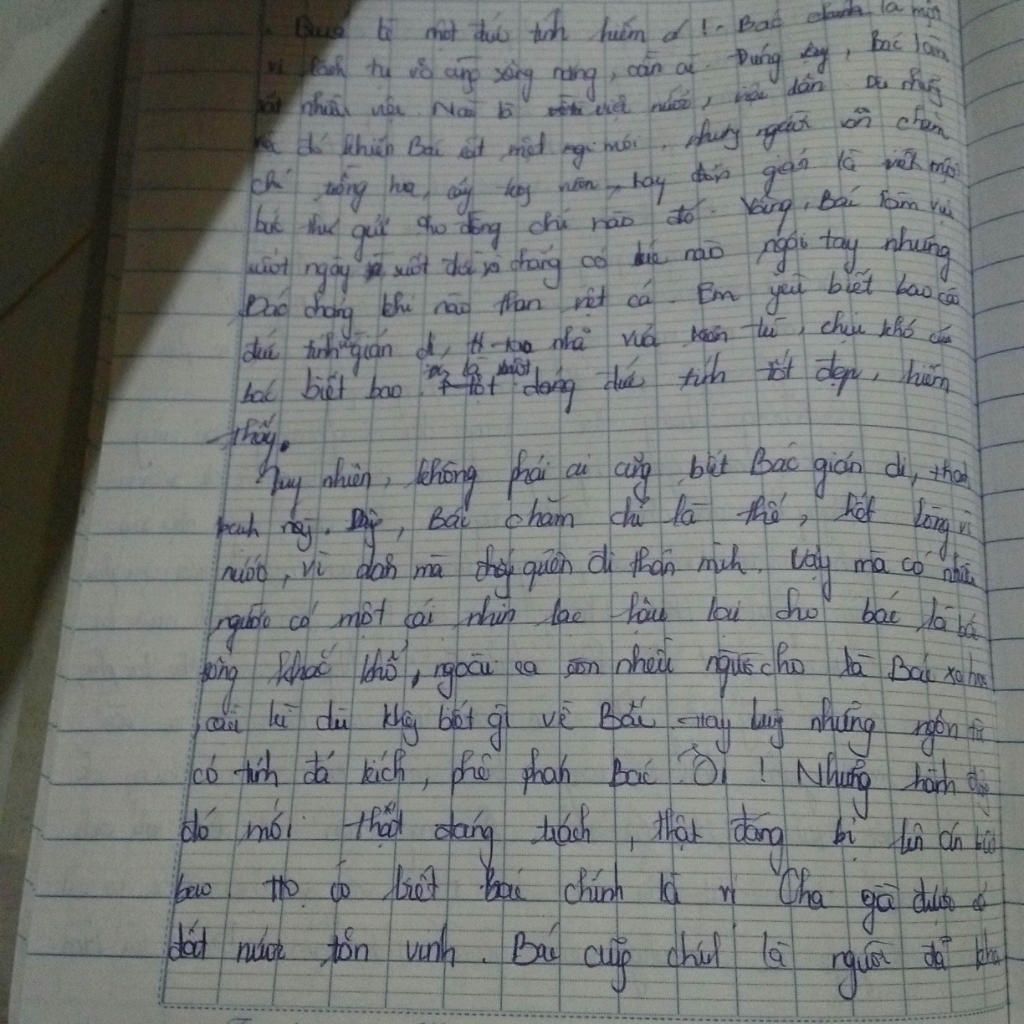 một đức tính hiếm có! Bác chính là một
vô cùng sáng, cần cù. Đúng vậy, Bác làm
nhiều việc. Nào là việc nước, việc dân
đó khiến Bác mệt mỏi. nhưng người vẫn chăm
chỉ trồng hoa, cây hay đơn giản là viết một
bức thư gửi cho đồng chí nào đó. Vâng, Bác làm việc
suốt ngày suốt đời và chẳng có lúc nào ngơi tay nhưng
Bác chẳng khi nào than vãn cả. Em yêu biết bao cái
đức tính giản dị, nhã và chịu khó của
bác biết bao đức tính tốt đẹp, hiếm
thấy.
Tuy nhiên, không phải ai cũng biết Bác giản dị, thanh
bạch này. Bác chăm chỉ là thế, hết lòng vì
nước, vì dân mà quên đi thân mình. Vậy mà có nhiều
người có một cái nhìn lạc hậu lại cho bác là bác
sống khắc khổ, ngoài ra còn nhiều người cho là Bác xa hoa
dù không biết gì về Bác hay những ngôn từ
có tính đả kích, phê phán Bác. Ôi! Những hành động
đó mới thật đáng trách, thật đáng bị lên án biết
bao. Họ có biết bác chính là vị Cha già được cả
đất nước tôn vinh. Bác cũng chính là người đã